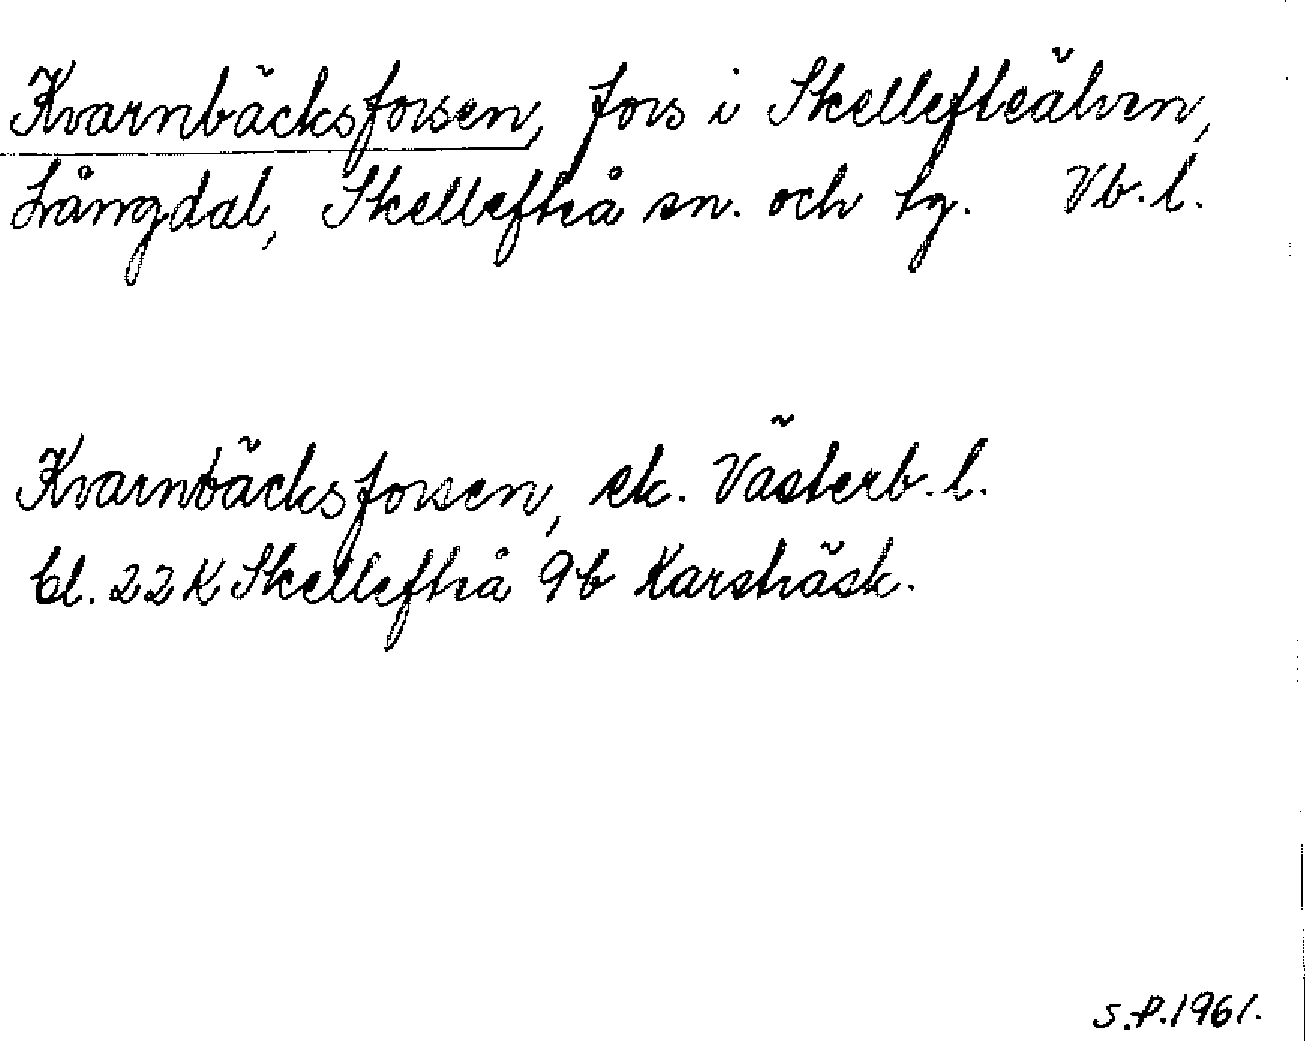 Kvarnbäcksforsen, fors i Skellefteälven,
Långdal, Skellefteå sn. och tg. Vb.l.
Kvarnbäcksforsen, ek. Västerb.l.
bl. 22K Skellefteå 9b Karsträsk.
S.P.1961.